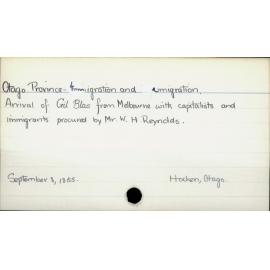 Otago Province - Immigration and emigration.
Arrival of Gil Blas from Melbourne with capitalists and
immigrants procured by Mr. W. H Reynolds.
September 3, 1855.
Hocken, Otago.